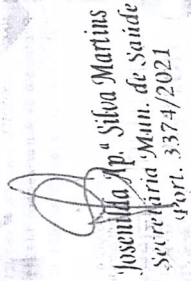 Josenilda Ap.ª Silva Martins
Secretária Mun. de Saúde
Port. 3374/2021